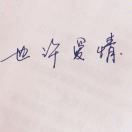 也许爱情.